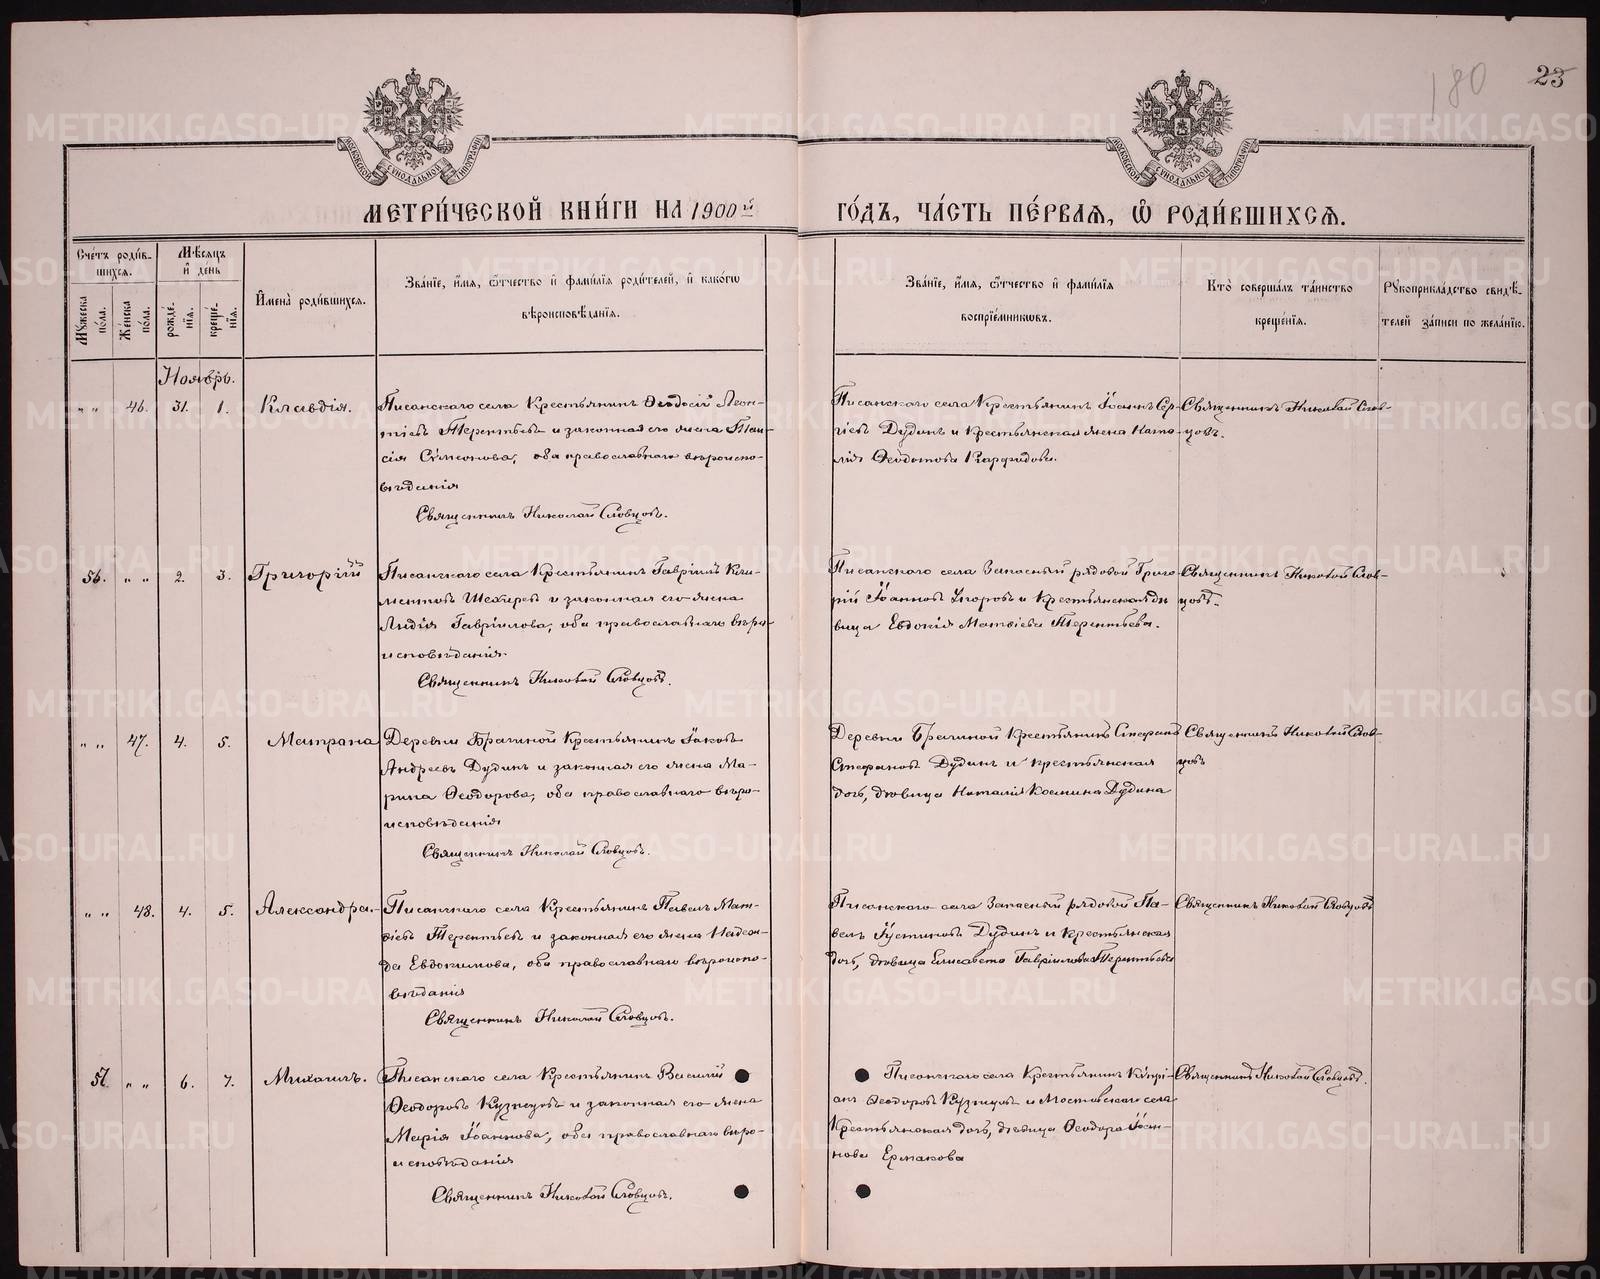 180 23
МОСКОВСКОЙ СѴНОДАЛЬНОЙ ТИПОГРАФІИ
МОСКОВСКОЙ СѴНОДАЛЬНОЙ ТИПОГРАФІИ
МЕТРИ́ЧЕСКОЙ КНИ́ГИ НА 1900й
ГО́ДЪ, ЧА́СТЬ ПЕ́РВАЯ, Ѡ РОДИ́ВШИХСЯ.
Сче́тъ роди́в-
шихся.
Мѣ́сяцъ
и҆ де́нь
Мꙋ́жеска
по́ла.
Же́нска
по́ла.
рожде́-
нїя.
креще́-
нїя.
И҆мена̀ роди́вшихся.
Зва́нїе, и҆́мя, ѻ҆́тчество и҆ фами́лїя роди́телей, и҆ како́гѡ
вѣроисповѣ́данїя.
Зва́нїе, и҆́мя, ѻ҆́тчество и҆ фами́лїя
воспрїе́мникѡвъ.
Кто̀ соверша́лъ та́инство
креще́нїя.
Рꙋкоприкла́дство свидѣ́-
телей за́писи по жела́нїю.
Ноябрь.
" " 46. 31. 1. Клавдія.
Писанскаго села Крестьянинъ Ѳеодосій Леон-
тіевъ Терентьевъ и законная его жена Таи-
сія Сѵмеонова, оба православнаго вѣроиспо-
вѣданія
Священникъ Николай Словцовъ.
Писанскаго села Крестьянинъ Іоаннъ Сер-
гіевъ Дудинъ и крестьянская жена Ната-
лія Ѳеодотова
Священникъ Николай Слов-
цовъ.
56. " " 2. 3. Григорій
Писанскаго села Крестьянинъ Гавріилъ Кли-
ментовъ и законная его жена
Лидія Гавріилова, оба православнаго вѣро-
исповѣданія
Священникъ Николай Словцовъ.
Писанскаго села Запасный рядовой Григо-
рій Іоанновъ и Крестьянская дѣ-
вица Евдокія Матвіева Терентьева.
Священникъ Николай Слов-
цовъ.
" " 47. 4. 5. Матрона
Деревни Крестьянинъ Іаковъ
Андреевъ Дудинъ и законная его жена Ма-
рина Ѳеодорова, оба православнаго вѣро-
исповѣданія
Священникъ Николай Словцовъ.
Деревни Крестьянинъ Стефанъ
Стефановъ Дудинъ и крестьянская
дочь, дѣвица Наталія Космина Дудина
Священникъ Николай Слов-
цовъ
" " 48. 4. 5. Александра.
Писанскаго села Крестьянинъ Павелъ Мат-
віевъ Терентьевъ и законная его жена Надеж-
да Евдокимова, оба православнаго вѣроиспо-
вѣданія
Священникъ Николай Словцовъ.
Писанскаго села Запасный рядовой Па-
велъ Іустиновъ Дудинъ и крестьянская
дочь, дѣвица Елисавета Гавріилова Терентьева
Священникъ Николай Словцовъ
57. " " 6. 7. Михаилъ.
Писанскаго села Крестьянинъ Василій
Ѳеодоровъ Кузнецовъ и законная его жена
Марія Іоаннова, оба православнаго вѣро-
исповѣданія
Священникъ Николай Словцовъ.
Писанскаго села Крестьянинъ Кипрі-
анъ Ѳеодоровъ Кузнецовъ и Мостовскаго села
Крестьянская дочь, дѣвица Ѳеодора Іоан-
нова Ермакова
Священникъ Николай Словцовъ.
METRIKI.GASO-URAL.RU